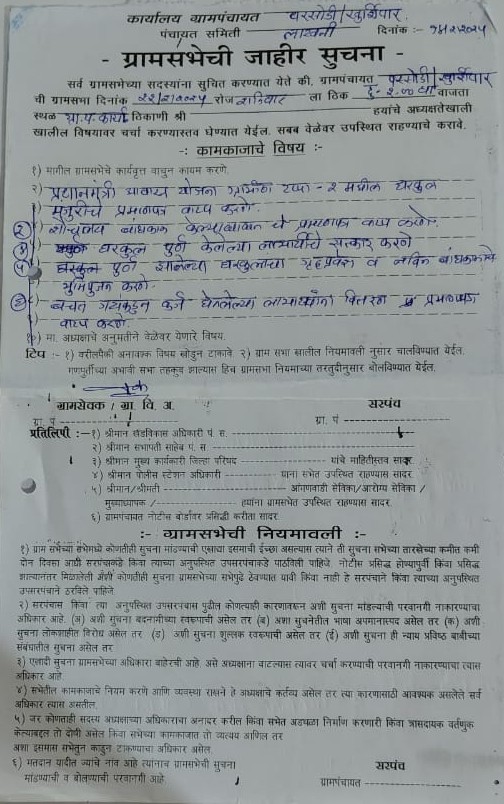 कार्यालय ग्रामपंचायत परसोडी/खुर्शिपार.
पंचायत समिती लाखनी दिनांक :-
- ग्रामसभेची जाहीर सुचना -
सर्व ग्रामसभेच्या सदस्यांना सुचित करण्यात येते की, ग्रामपंचायत परसोडी/खुर्शिपार
ची ग्रामसभा दिनांक २२/२/२०२५ रोज शनिवार ला ठिक दु. २.०० वा वाजता
स्थळ ग्रा.पं.कार्या. ठिकाणी श्री हयांचे अध्यक्षतेखाली
खालील विषयावर चर्चा करण्यास्तव घेण्यात येईल. सबब वेळेवर उपस्थित राहण्याचे करावे.
-: कामकाजाचे विषय :-
१) मागील ग्रामसभेचे कार्यवृत्त वाचुन कायम करणे.
२) प्रधानमंत्री आवास योजना ग्रामीण टप्पा - २ मधील घरकुल
मंजुरीचे प्रमाणपत्र वाटप करणे.
शौचालय बांधकाम चे प्रमाणपत्र वाटप करणे.
घरकुल पुर्ण केलेल्या लाभार्थीचे सत्कार करणे
घरकुल पुर्ण झालेल्या घरकुलांचा गृहप्रवेश व नविन बांधकामाचे
भुमिपुजन करणे.
बचत गटाकडुन कर्ज घेतलेल्या लाभार्थ्यांना वितरण प्रमाणपत्र
वाटप करणे.
१०) मा. अध्यक्षाचे अनुमतीने वेळेवर येणारे विषय.
टिप :- १) वरीलपैकी अनावश्क विषय खोडून टाकावे. २) ग्राम सभा खालील नियमावली नुसार चालविण्यात येईल.
गणपुर्तीच्या अभावी सभा तहकुब झाल्यास हिच ग्रामसभा नियमाच्या तरतुदीनुसार बोलविण्यात येईल.
ग्रामसेवक / ग्रा. वि. अ. सरपंच
ग्रा. पं ग्रा. पं
प्रतिलिपी :- १) श्रीमान खंडविकास अधिकारी पं. स.
२) श्रीमान सभापती साहेब पं. स.
३) श्रीमान मुख्य कार्यकारी जिल्हा परिषद यांचे माहितीस्तव सादर.
४) श्रीमान पोलीस स्टेशन अधिकारी यांना सभेत उपस्थित राहण्यास सादर.
५) श्रीमान/श्रीमती आंगणवाडी सेविका/आरोग्य सेविका /
मुख्याध्यापक / हयांना ग्रामसभेत उपस्थित राहण्यास सादर.
६) ग्रामपंचायत नोटीस बोर्डावर प्रसिद्धी करीता सादर
:- ग्रामसभेची नियमावली :-
१) ग्राम सभेच्या सभेमध्ये कोणतीही सुचना मांडण्याची एखाद्या इसमाची ईच्छा असल्यास त्याने ती सुचना सभेच्या तारखेच्या कमीत कमी
दोन दिवसा आधी सरपंचाकडे किंवा त्याच्या अनुपस्थित उपसरपंचाकडे पाठविली पाहिजे. नोटीस प्रसिद्ध होण्यापुर्वी किंवा प्रसिद्ध
झाल्यानंतर मिळालेली अशी कोणतीही सुचना ग्रामसभेच्या सभेपुढे ठेवण्यात यावी किंवा नाही हे सरपंचाने किंवा त्याच्या अनुपस्थितीत
उपसरपंचाने ठरविले पाहिजे.
२) सरपंचास किंवा त्या अनुपस्थित उपसरपंचास पुढील कोणत्याही कारणावरून अशी सुचना मांडल्याची परवानगी नाकारण्याचा
अधिकार आहे. (अ) अशी सुचना बदनामीच्या स्वरूपाची असेल तर (ब) अशा सुचनेतील भाषा अपमानास्पद असेल तर (क) अशी
सुचना लोकशाहीत विरोध असेल तर (ड) अशी सुचना शुल्लक स्वरूपाची असेल तर (ई) अशी सुचना ही न्याय प्रविष्ठ बाबीच्या
संबंधातील सुचना असेल तर
३) एखादी सुचना ग्रामसभेच्या अधिकारा बाहेरची आहे. असे अध्यक्षाना वाटल्यास त्यावर चर्चा करण्याची परवानगी नाकारण्याचा त्यास
अधिकार आहे
४) सभेतील कामकाजाचे नियम करणे आणि व्यवस्था राखने हे अध्यक्षाचे कर्तव्य असेल तर त्या कारणासाठी आवश्यक असलेले सर्व
अधिकार त्यास असतील.
५) जर कोणताही सदस्य अध्यक्षाच्या अधिकाराचा अनादर करील किंवा सभेत अडथळा निर्माण करणारी किंवा त्रासदायक वर्तणुक
केल्याबद्दल तो दोषी असेल किंवा सभेच्या कामकाजात तो व्यत्यय आणिल तर
अशा इसमास सभेतुन काढुन टाकण्याचा अधिकार असेल.
६) मतदान यादीत ज्यांचे नांव आहे त्यांनाच ग्रामसभेची सुचना सरपंच
मांडण्याची व बोलण्याची परवानगी आहे. ग्रामपंचायत